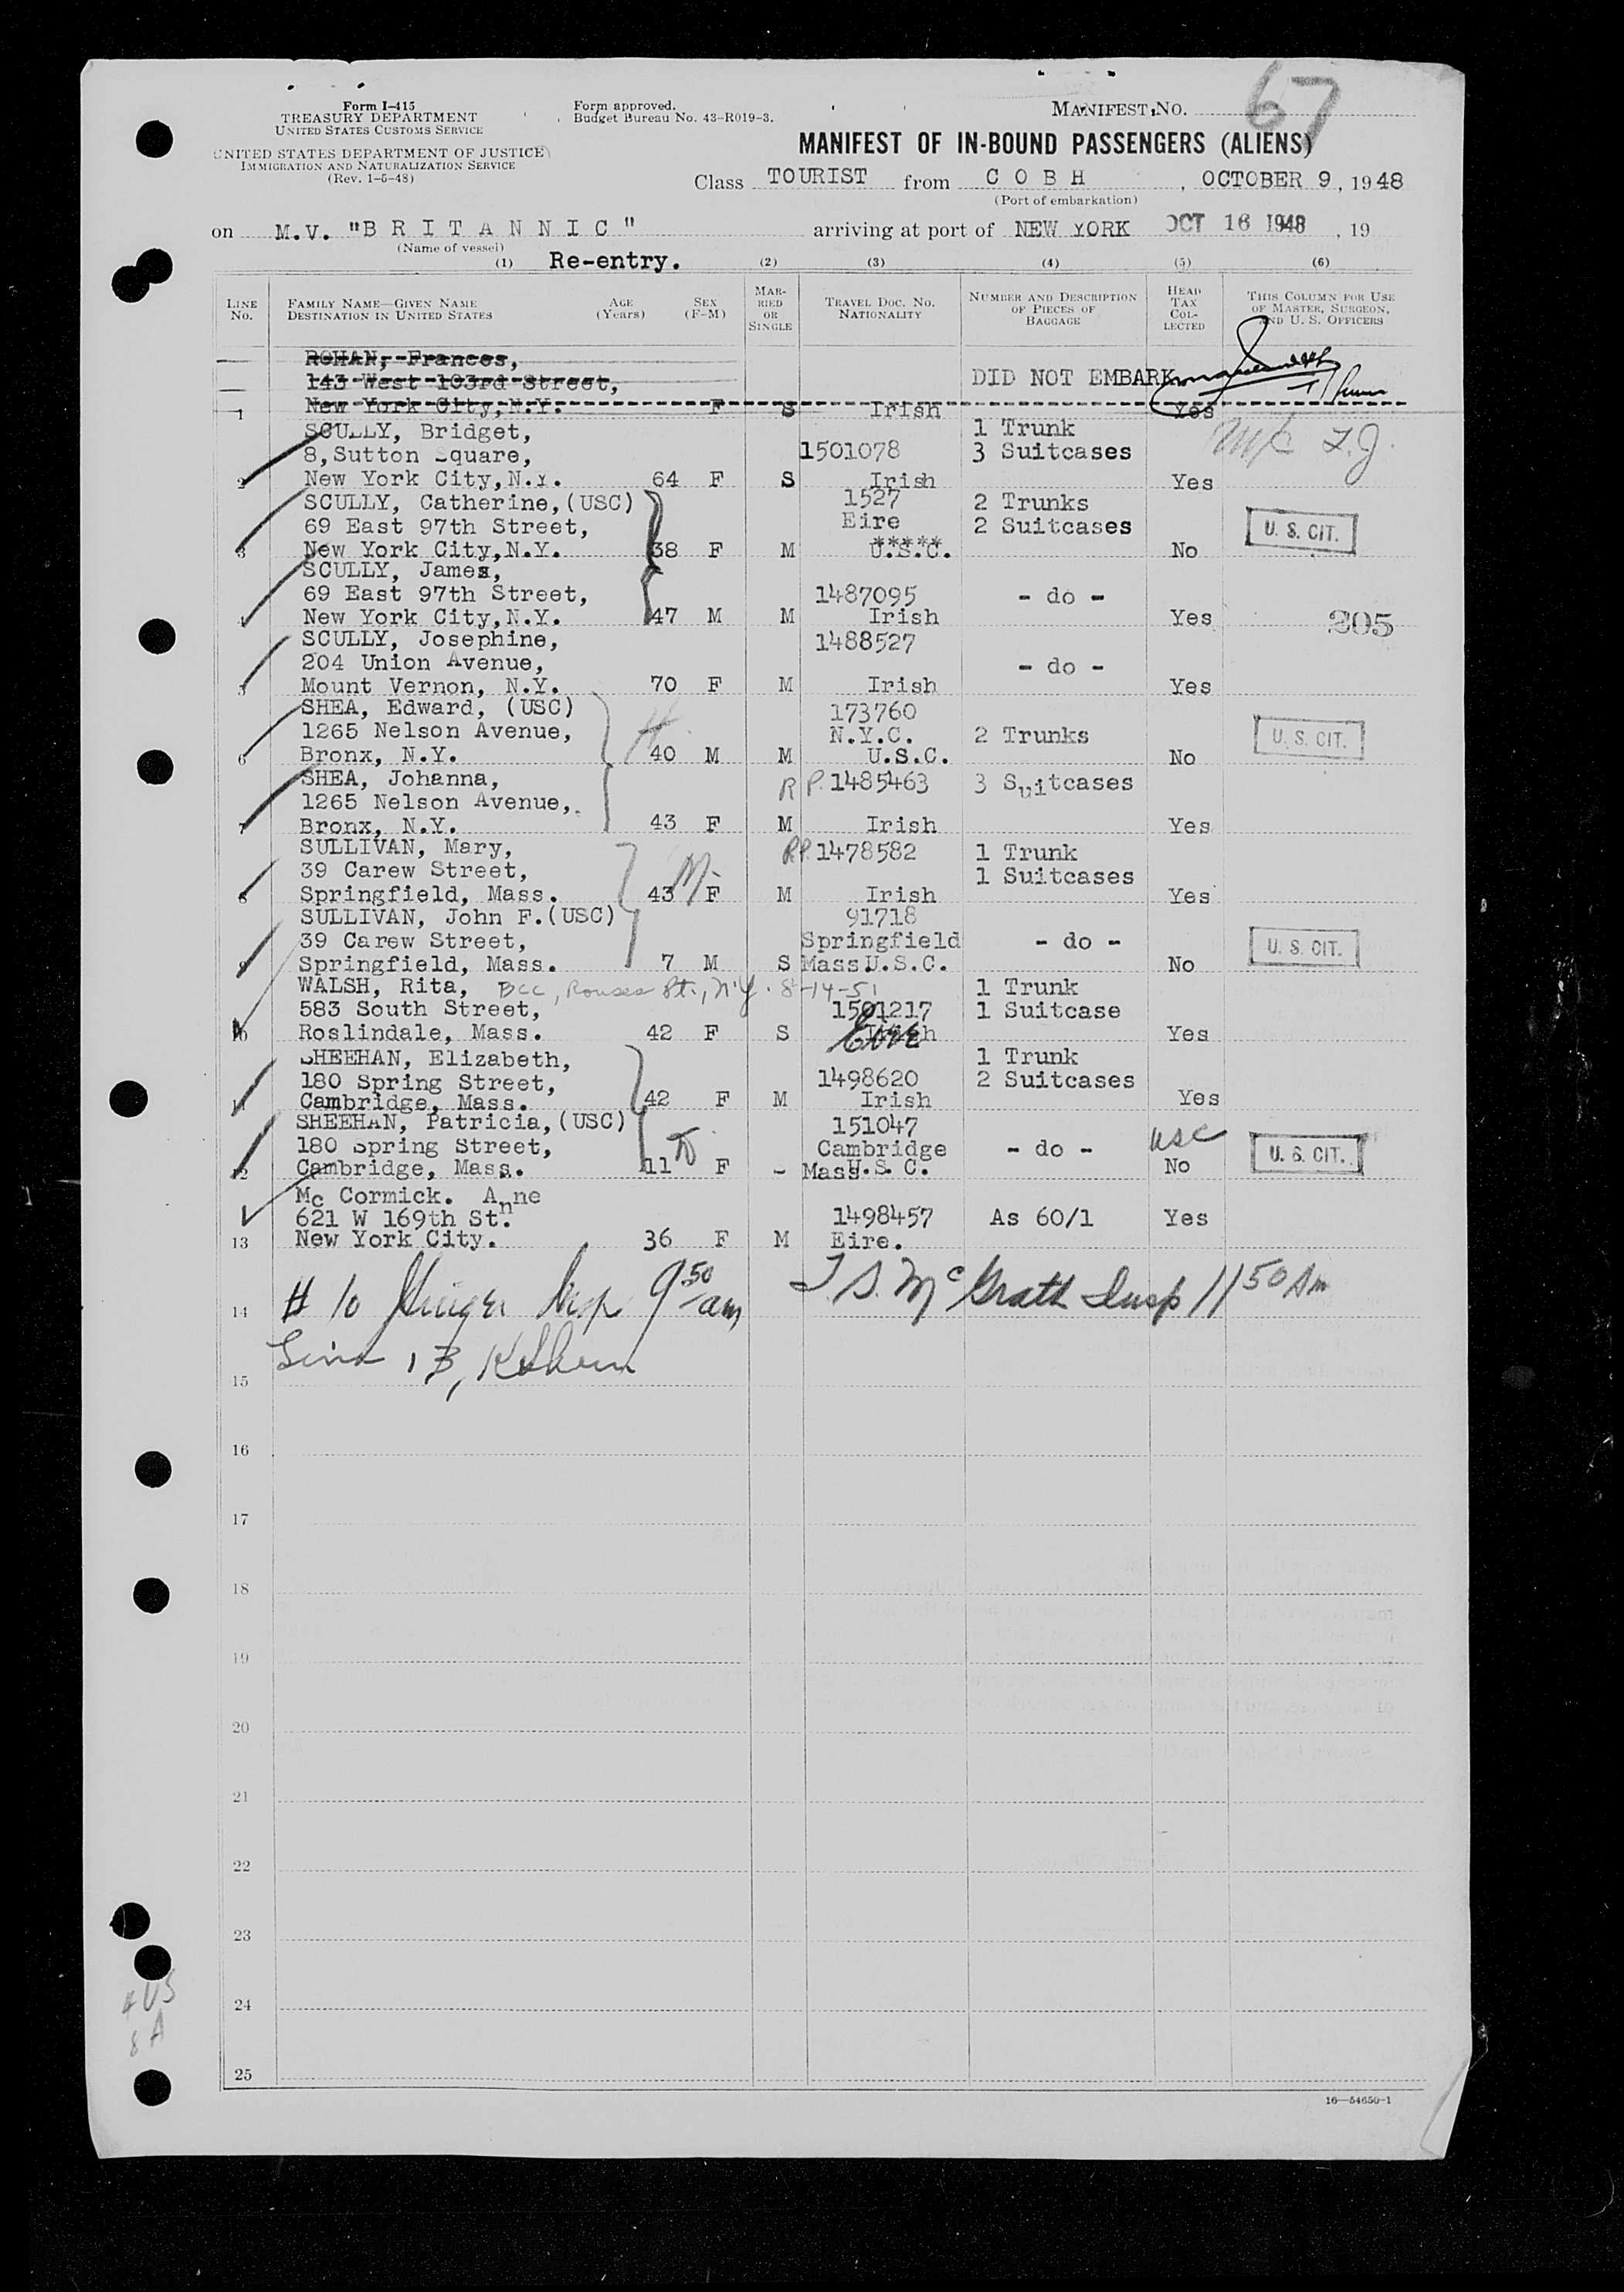 Form I-415
TREASURY DEPARTMENT
UNITED STATES CUSTOMS SERVICE
UNITED STATES DEPARTMENT OF JUSTICE
IMMIGRATION AND NATURALIZATION SERVICE
(Rev. 1-5-48)
Form approved.
Budget Bureau No. 43-R019-3.
MANIFEST NO. 67
MANIFEST OF IN-BOUND PASSENGERS (ALIENS)
Class TOURIST from C O B H, OCTOBER 9, 1948
(Port of embarkation)
on M.V. "B R I T A N N I C" arriving at port of NEW YORK OCT 16 1948, 19
(Name of vessel)
(1) Re-entry. (2) (3) (4) (5) (6)
LINE NO. FAMILY NAME—GIVEN NAME DESTINATION IN UNITED STATES AGE (Years) SEX (F-M) MARRIED OR SINGLE TRAVEL DOC. NO. NATIONALITY NUMBER AND DESCRIPTION OF PIECES OF BAGGAGE HEAD TAX COLLECTED THIS COLUMN FOR USE OF MASTER, SURGEON, AND U. S. OFFICERS
ROHAN, Frances,
143 West 103rd Street, DID NOT EMBARK
1 New York City, N.Y. F S Irish Yes
SCULLY, Bridget, 1 Trunk
8, Sutton Square, 1501078 3 Suitcases
2 New York City, N.Y. 64 F S Irish Yes
SCULLY, Catherine, (USC) 1527 2 Trunks
69 East 97th Street, Eire 2 Suitcases U. S. CIT.
3 New York City, N.Y. 38 F M ***** U.S.C. No
SCULLY, James,
69 East 97th Street, 1487095 - do -
4 New York City, N.Y. 47 M M Irish Yes 205
SCULLY, Josephine, 1488527
204 Union Avenue, - do -
5 Mount Vernon, N.Y. 70 F M Irish Yes
SHEA, Edward, (USC) 173760
1265 Nelson Avenue, N.Y.C. 2 Trunks U. S. CIT.
6 Bronx, N.Y. 40 M M U.S.C. No
SHEA, Johanna, R P. 1485463 3 Suitcases
1265 Nelson Avenue,
7 Bronx, N.Y. 43 F M Irish Yes
SULLIVAN, Mary, R.P. 1478582 1 Trunk
39 Carew Street, 1 Suitcases
8 Springfield, Mass. 43 F M Irish Yes
SULLIVAN, John F. (USC) 91718
39 Carew Street, Springfield - do - U. S. CIT.
9 Springfield, Mass. 7 M S Mass U.S.C. No
WALSH, Rita, BCC, Rouses Pt., N.Y. 8-14-51 1 Trunk
583 South Street, 1501217 1 Suitcase
10 Roslindale, Mass. 42 F S Irish Eire Yes
SHEEHAN, Elizabeth, 1 Trunk
180 Spring Street, 1498620 2 Suitcases
11 Cambridge, Mass. 42 F M Irish Yes
SHEEHAN, Patricia, (USC) 151047 USC
180 Spring Street, Cambridge - do - U. S. CIT.
12 Cambridge, Mass. 11 F - Mass U.S.C. No
Mc Cormick. Anne
621 W 169th St. 1498457 As 60/1 Yes
13 New York City. 36 F M Eire.
14 # 10 Insp 9 50 am J S. McGrath Insp 11 50 Am
Line 13,
15
16
17
18
19
20
21
22
23
24
25
4 US
8 A
16—54650-1